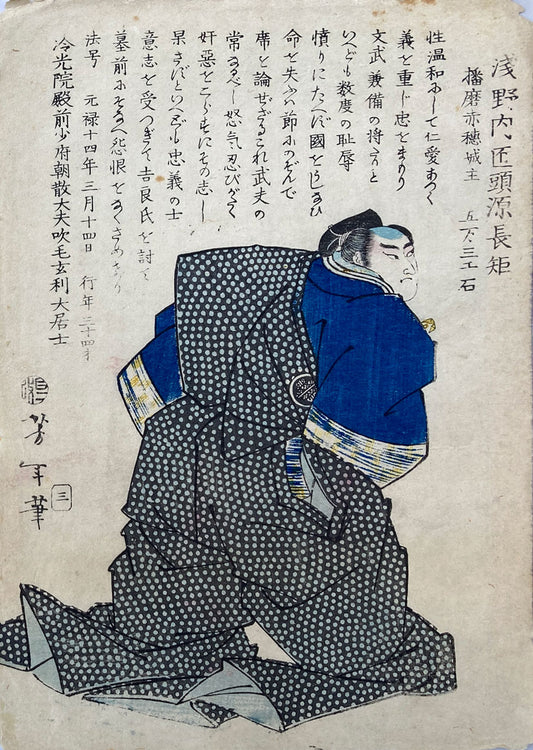 浅野内匠頭源長矩
播磨赤穂城主 五万三千石
性温和にして仁愛あつく
義を重じ忠をまもり
文武兼備の将なりと
いへども数度の恥辱
憤りにたへず國をうしなひ
命を失ふハ節にのぞんで
席を論ぜざるこれ武夫の
常なるべし怒気忍びがたく
奸悪をこらすにその志し
果さずといへども忠義の士
意志を受つぎて吉良氏を討て
墓前にそなへ怨恨をなぐさめけり
法号 元禄十四年三月十四日 行年三十四才
冷光院殿前少府朝散大夫吹毛玄利大居士
芳年筆
三